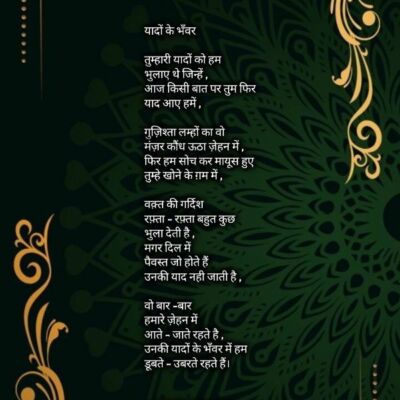 यादों के भँवर
तुम्हारी यादों को हम
भुलाए थे जिन्हें ,
आज किसी बात पर तुम फिर
याद आए हमें ,
गुज़िश्ता लम्हों का वो
मंज़र कौंध ऊठा ज़ेहन में ,
फिर हम सोच कर मायूस हुए
तुम्हे खोने के ग़म में ,
वक़्त की गर्दिश
रफ़्ता - रफ़्ता बहुत कुछ
भुला देती है ,
मगर दिल में
पैवस्त जो होते हैं
उनकी याद नही जाती है ,
वो बार -बार
हमारे ज़ेहन में
आते - जाते रहते है ,
उनकी यादों के भँवर में हम
डूबते - उबरते रहते हैं।